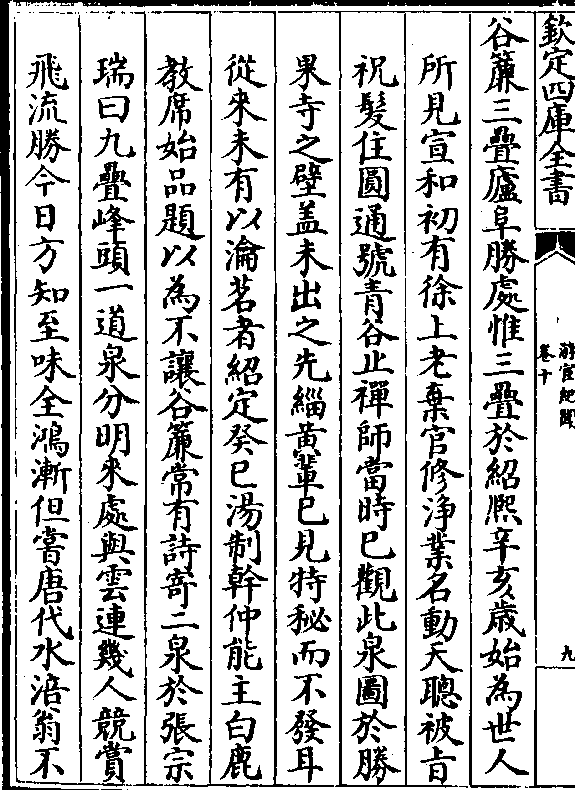 欽定四庫全書
游宦紀聞
卷十
九
谷簾三疊廬阜勝處惟三疊於紹熙辛亥歲始為世人
所見宣和初有徐上老棄官修淨業名動天聰被㫖
祝髮住圓通號青谷止禪師當時已觀此泉圖於勝
果寺之壁盖未出之先緇黃輩已見特秘而不發耳
從來未有以瀹茗者紹定癸巳湯制幹仲能主白鹿
教席始品題以為不讓谷簾常有詩寄二泉於張宗
瑞曰九疊峰頭一道泉分明來處與雲連幾人競賞
飛流勝今日方知至味全鴻漸但嘗唐代水涪翁不